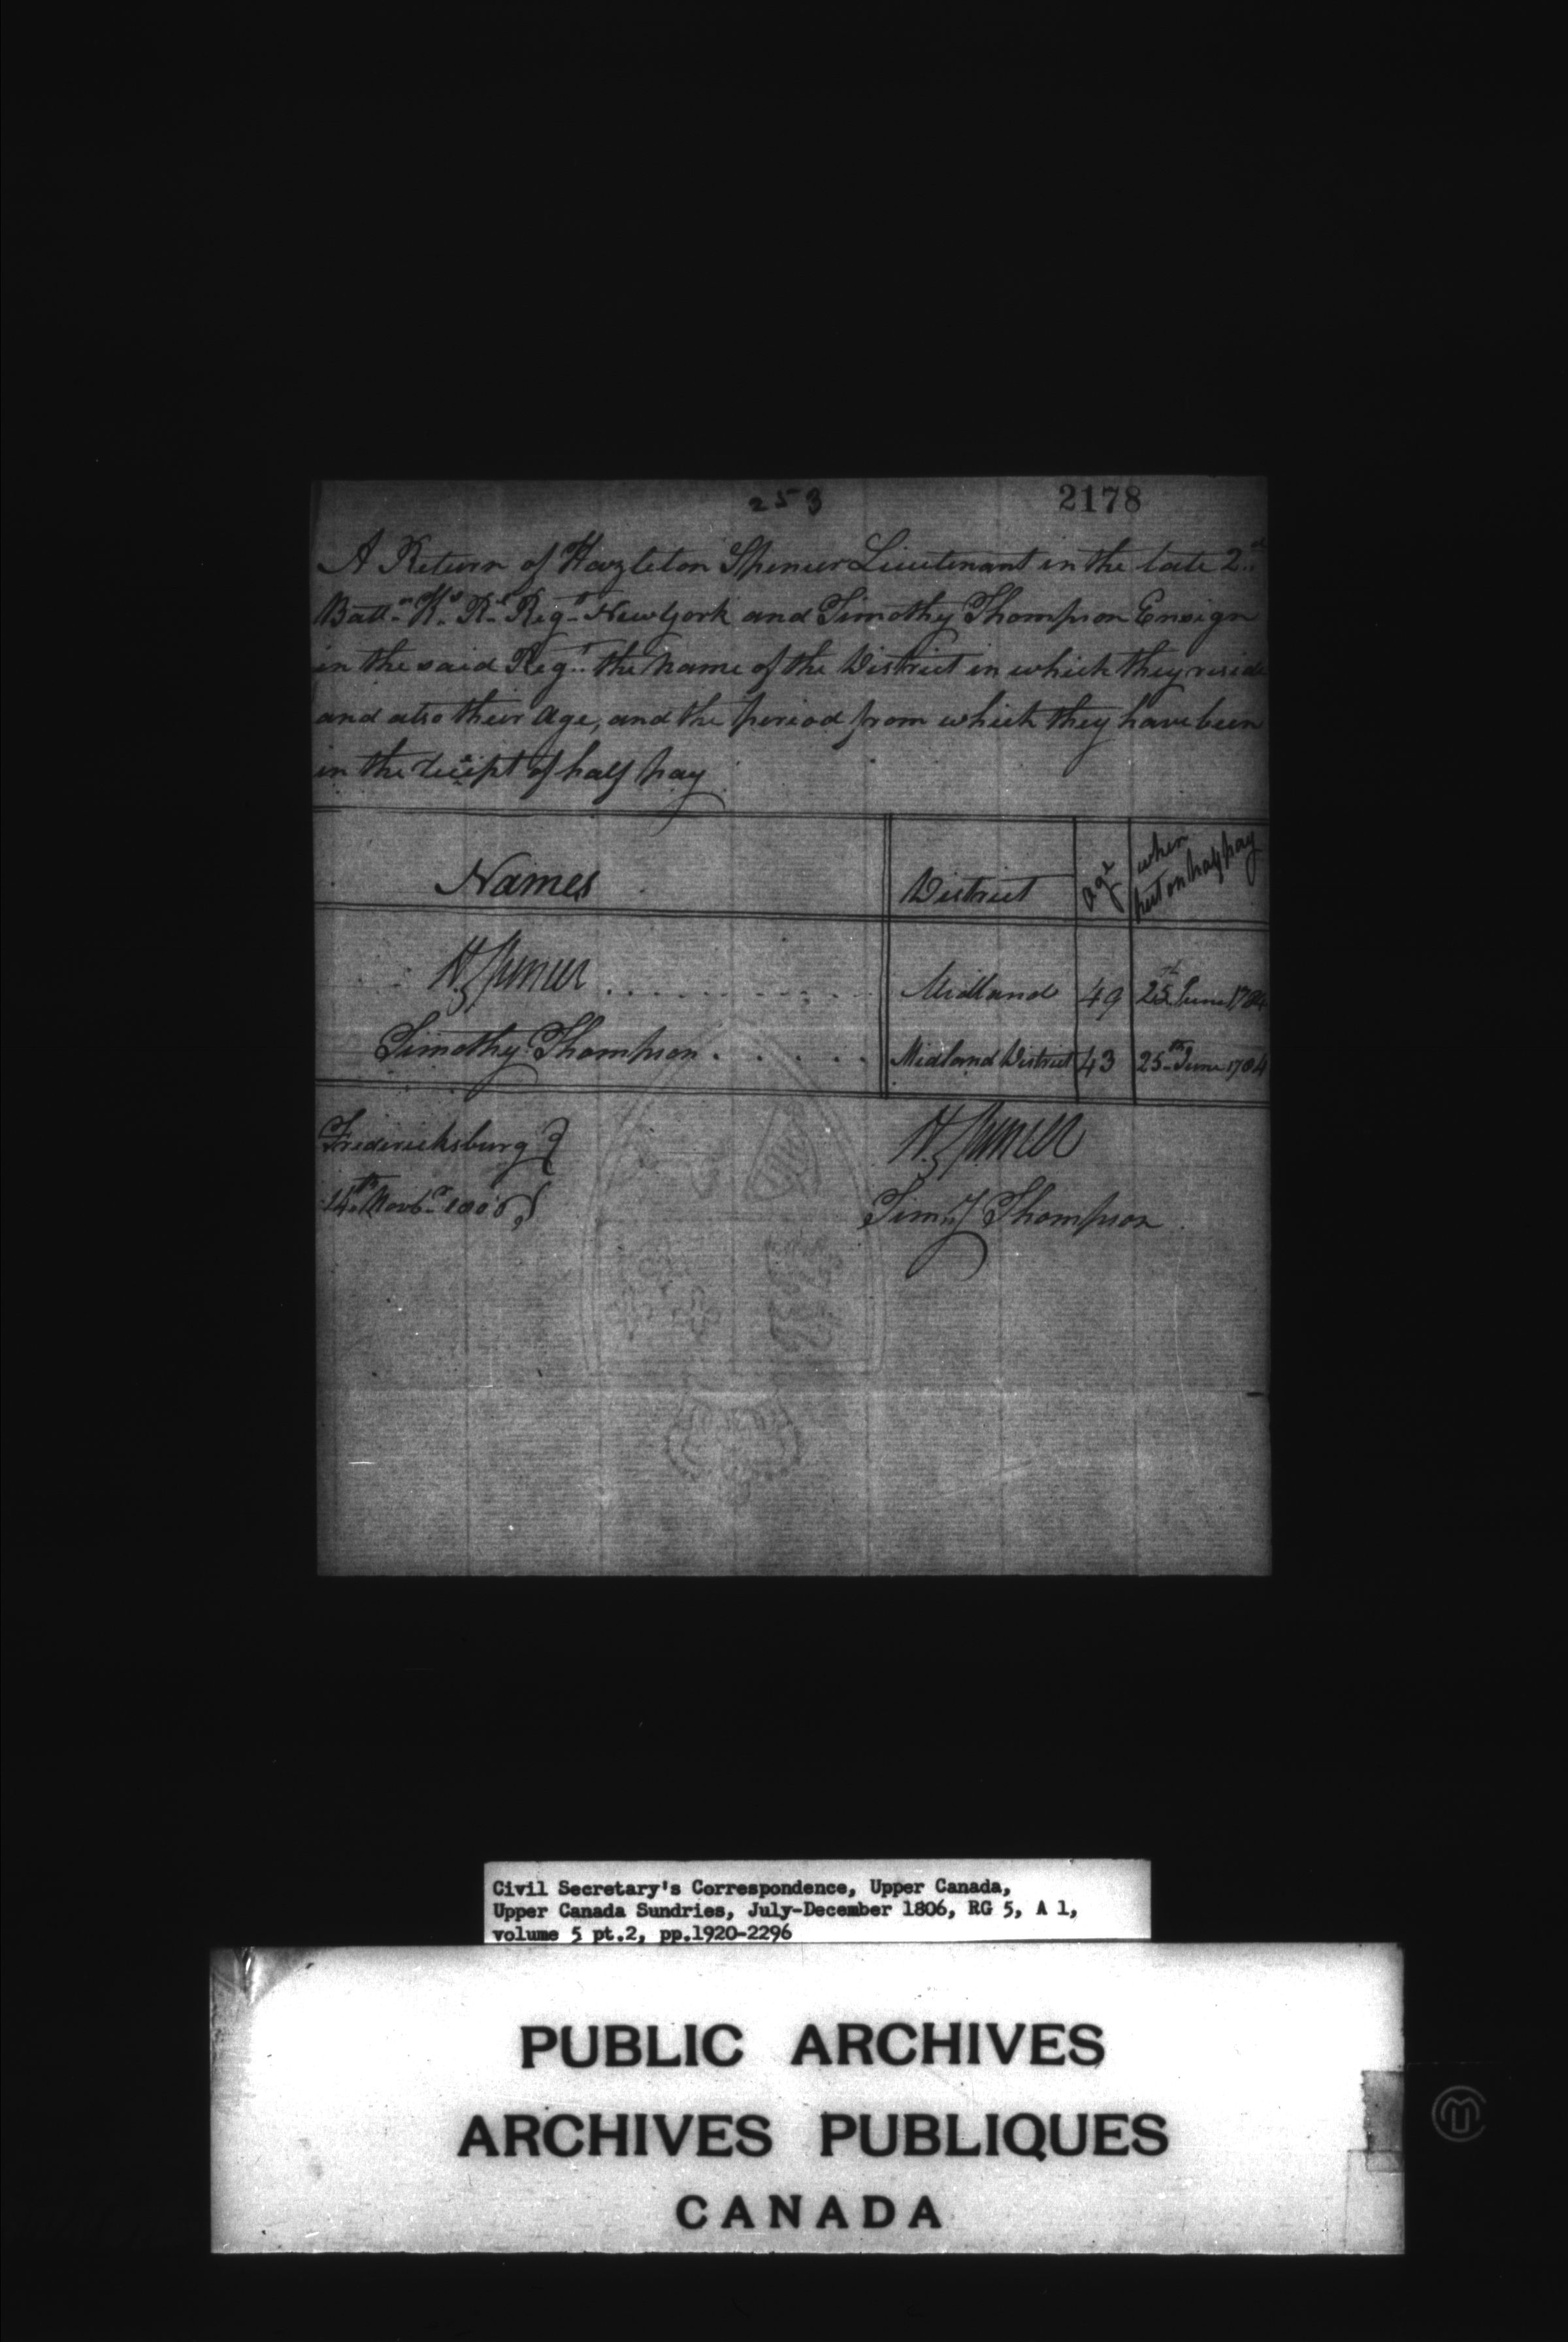 253 2178
A Return of Hazleton Spencer Lieutenant in the late 2nd
Battn Ks Rl Regt New York and Timothy Thompson Ensign
in the said Regt the Name of the District in which they reside
and also their Age, and the period from which they have been
in the receipt of half pay
Names District age when put on half pay
H Spencer . . . . . . . . . . Midland 49 25th June 1784
Timothy Thompson . . . . . Midland District 43 25th June 1784
Fredericksburg } H Spencer
14th Novbr 1806 } Timy Thompson
Civil Secretary's Correspondence, Upper Canada,
Upper Canada Sundries, July-December 1806, RG 5, A 1,
volume 5 pt.2, pp.1920-2296
PUBLIC ARCHIVES
ARCHIVES PUBLIQUES
CANADA